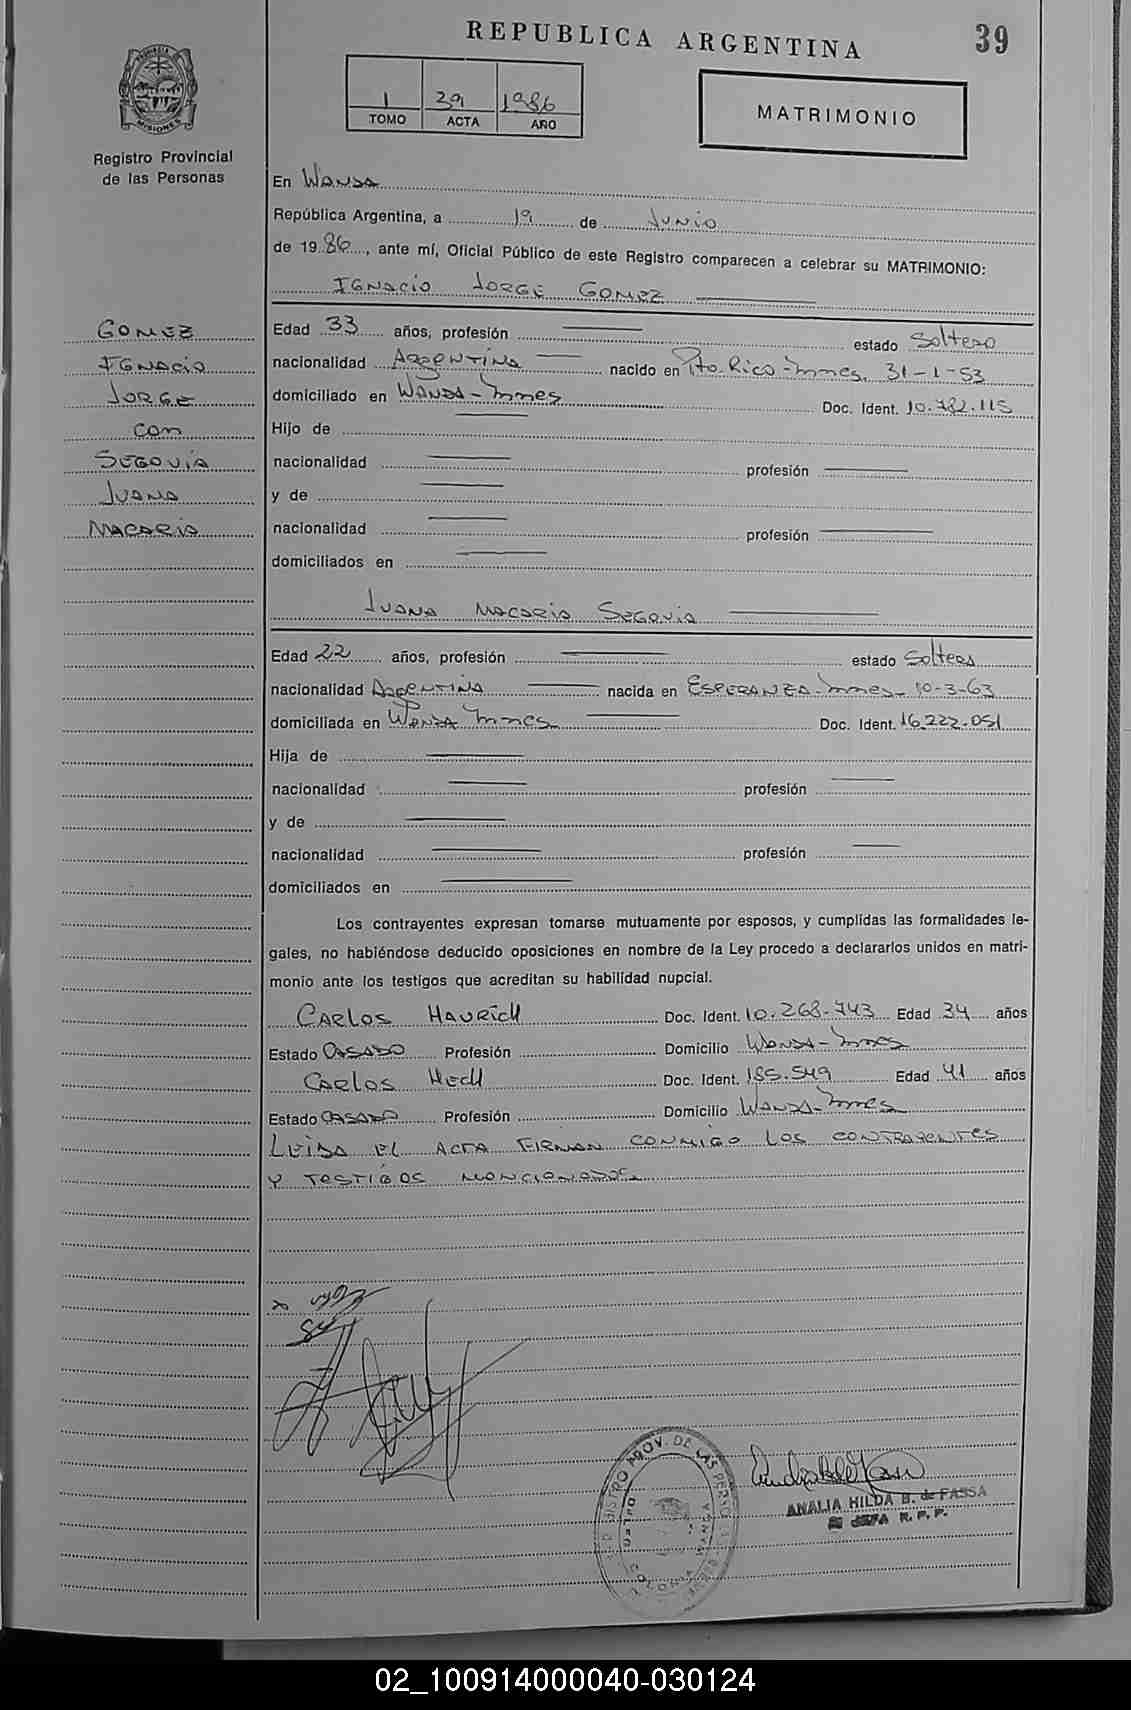 REPUBLICA ARGENTINA
39
PROVINCIA
MISIONES
Registro Provincial
de las Personas
1 39 1986
TOMO ACTA AÑO
MATRIMONIO
En Wanda
República Argentina, a 19 de Junio
de 1986, ante mí, Oficial Público de este Registro comparecen a celebrar su MATRIMONIO:
IGNACIO JORGE GOMEZ
GOMEZ
IGNACIO
JORGE
con
SEGOVIA
JUANA
MACARIA
Edad 33 años, profesión estado Soltero
nacionalidad ARGENTINA nacido en Pto. Rico-Mnes. 31-1-53
domiciliado en WANDA-Mnes Doc. Ident. 10.782.115
Hijo de
nacionalidad profesión
y de
nacionalidad profesión
domiciliados en
JUANA MACARIA SEGOVIA
Edad 22 años, profesión estado Soltera
nacionalidad ARGENTINA nacida en ESPERANZA-Mnes- 10-3-63
domiciliada en WANDA Mnes Doc. Ident. 16.222.051
Hija de
nacionalidad profesión
y de
nacionalidad profesión
domiciliados en
Los contrayentes expresan tomarse mutuamente por esposos, y cumplidas las formalidades le-
gales, no habiéndose deducido oposiciones en nombre de la Ley procedo a declararlos unidos en matri-
monio ante los testigos que acreditan su habilidad nupcial.
CARLOS HAURICH Doc. Ident. 10.268.743 Edad 34 años
Estado CASADO Profesión Domicilio WANDA-Mnes
CARLOS HECH Doc. Ident. 185.549 Edad 41 años
Estado CASADO Profesión Domicilio WANDA-Mnes
LEIDA EL ACTA FIRMAN CONMIGO LOS CONTRAYENTES
Y TESTIGOS MENCIONADOS
PROV. DE LAS
ANALIA HILDA B. de FASSA
JEFA R.P.P.
02_100914000040-030124